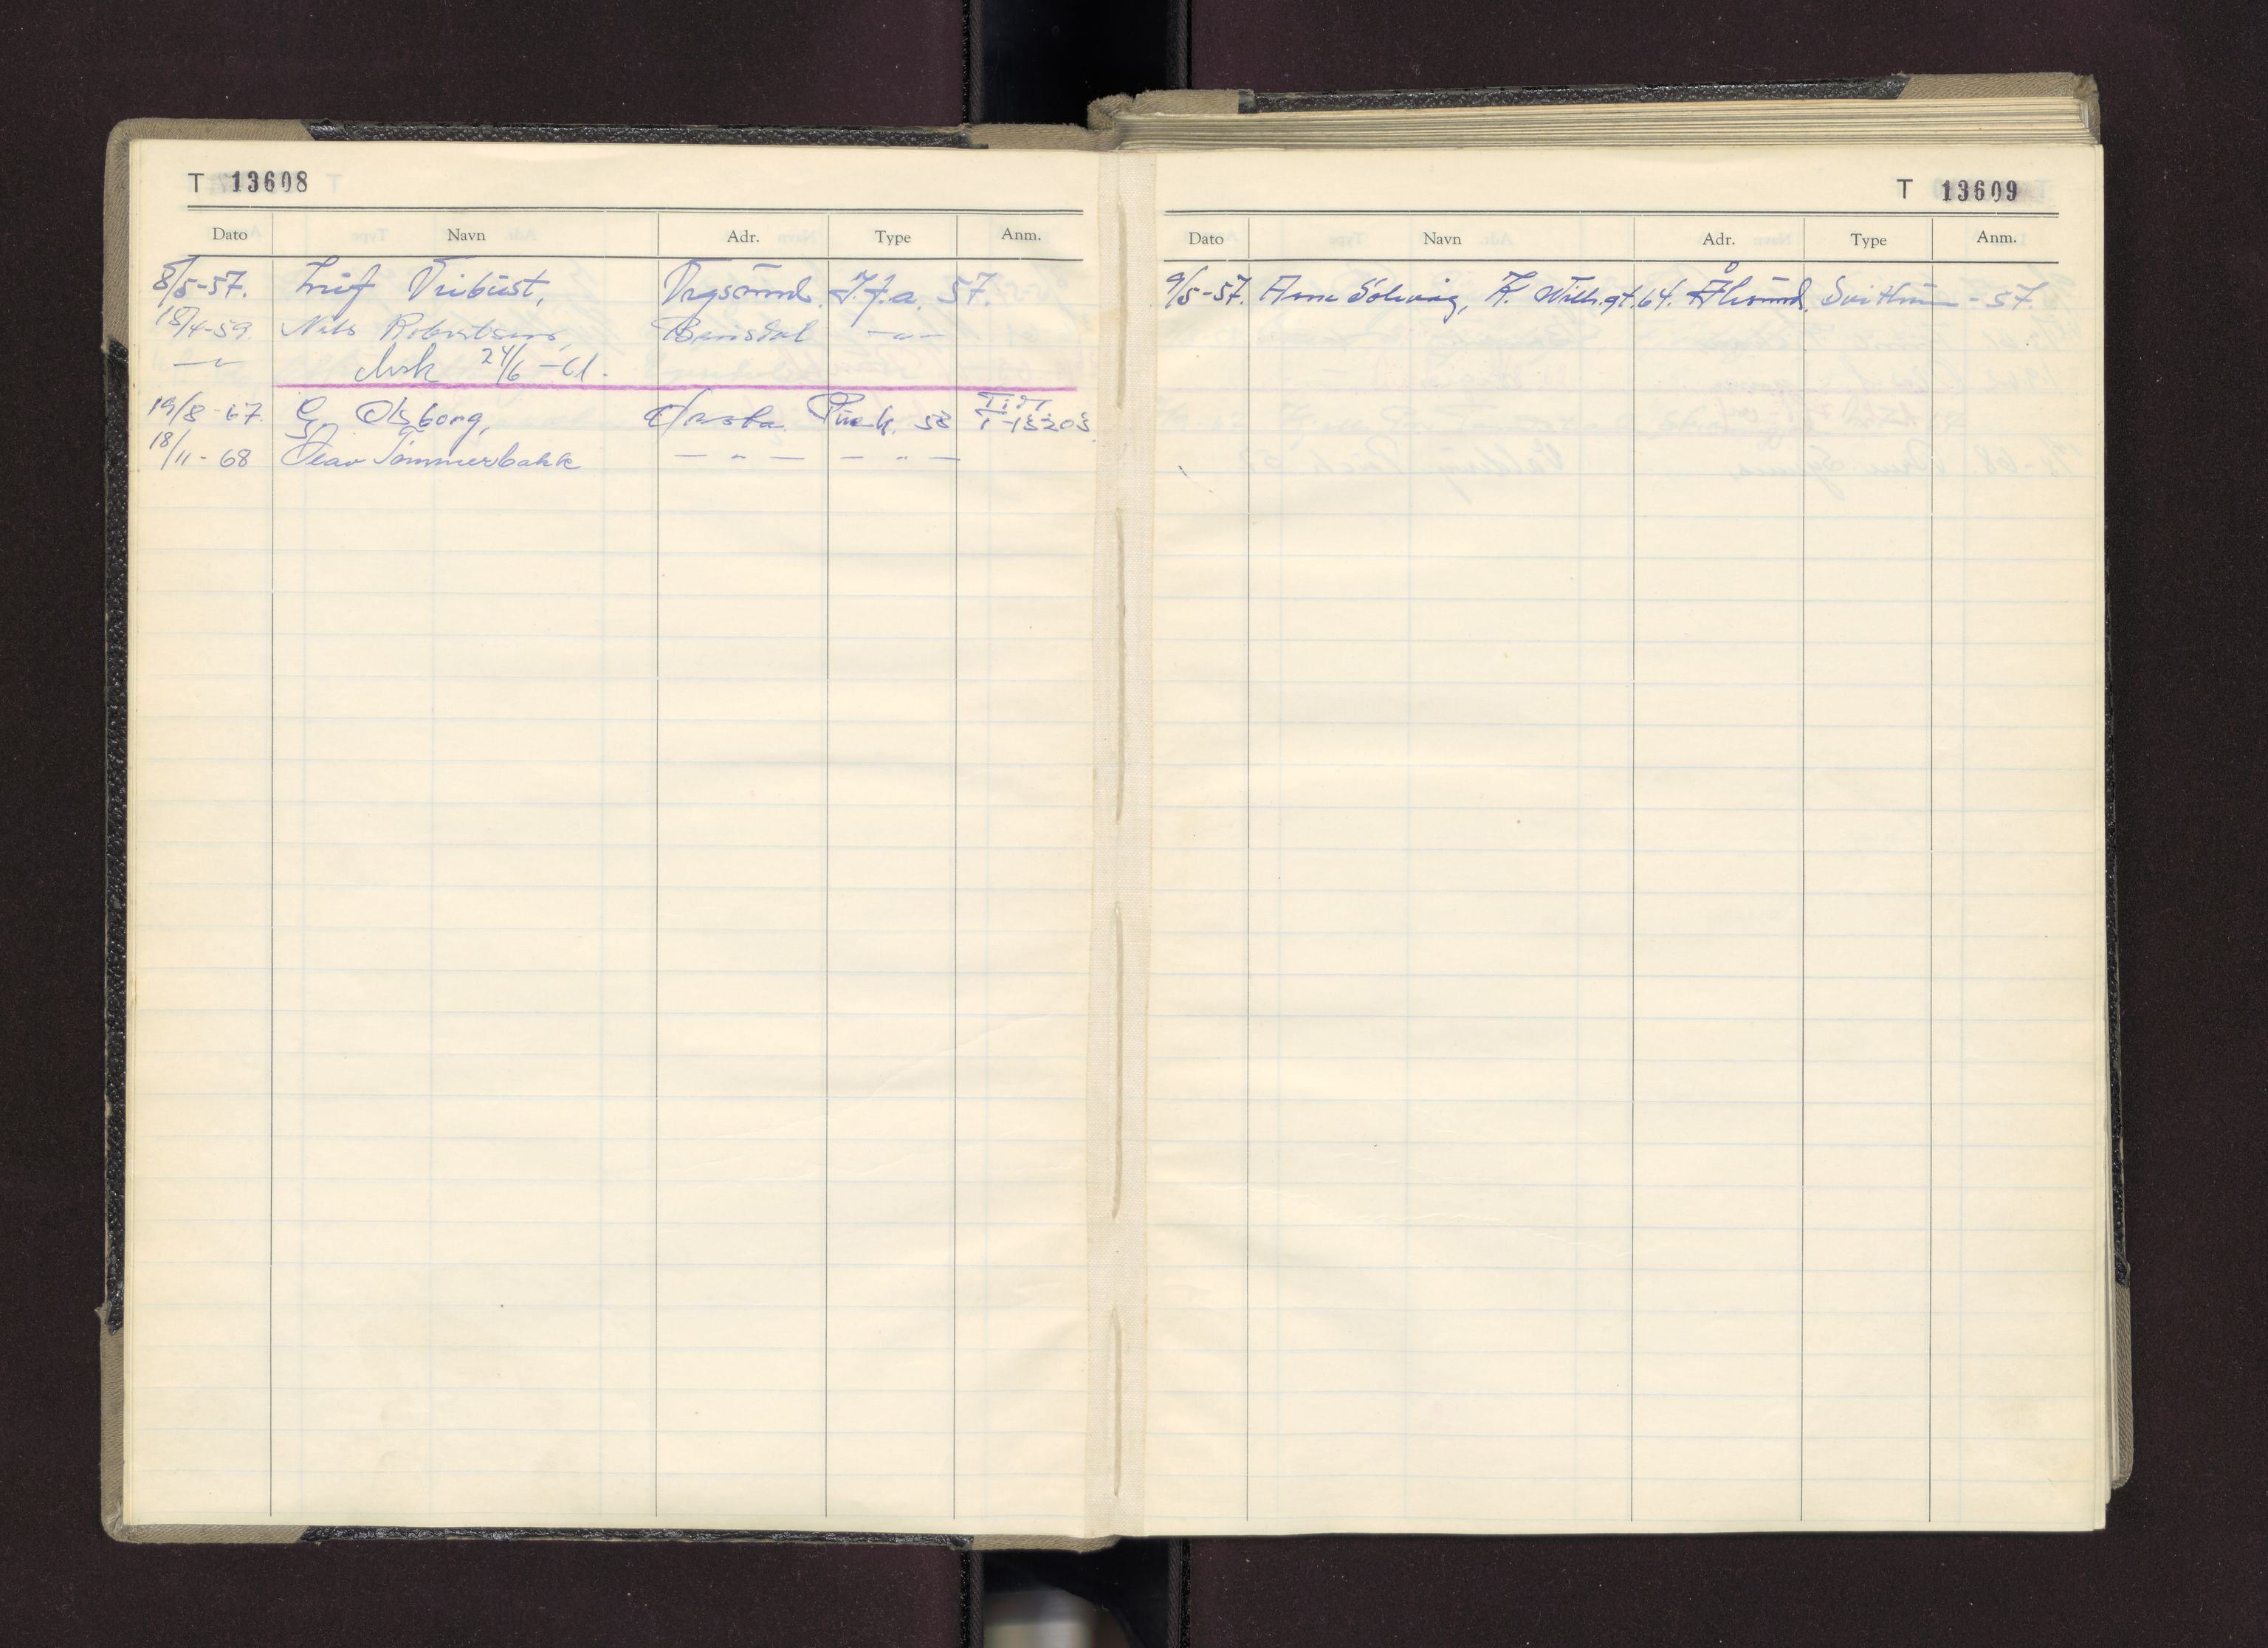 T 13608
Dato Navn Adr. Type Anm.
8/5-57. Leif Vribust, Vegsund. J.f.a. 57.
18/4-59 Nils Robertsen, —"—
—"— Avsk 24/6-61.
19/8-67 G. Olsborg, Ørsta Puch. 58 Tidl T-13203
18/11-68 Tømmerbakk —"— —"—
T 13609
Dato Navn Adr. Type Anm.
9/5-57. Arne Solevåg, K. Wilh.gt. 64. Ålesund. Svithun -57.